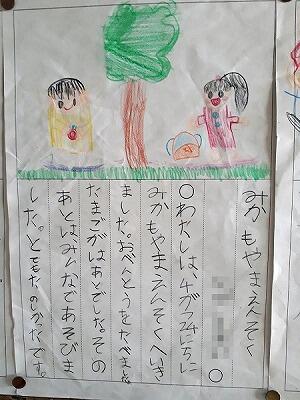 みかもやまえんそく
○わたしは、4がつ24にちに
みかもやまえんそくへいき
ました。おべんとうを
たまごがはあとでした。その
あとはみんなであそびま
した。とてもたのしかったです。